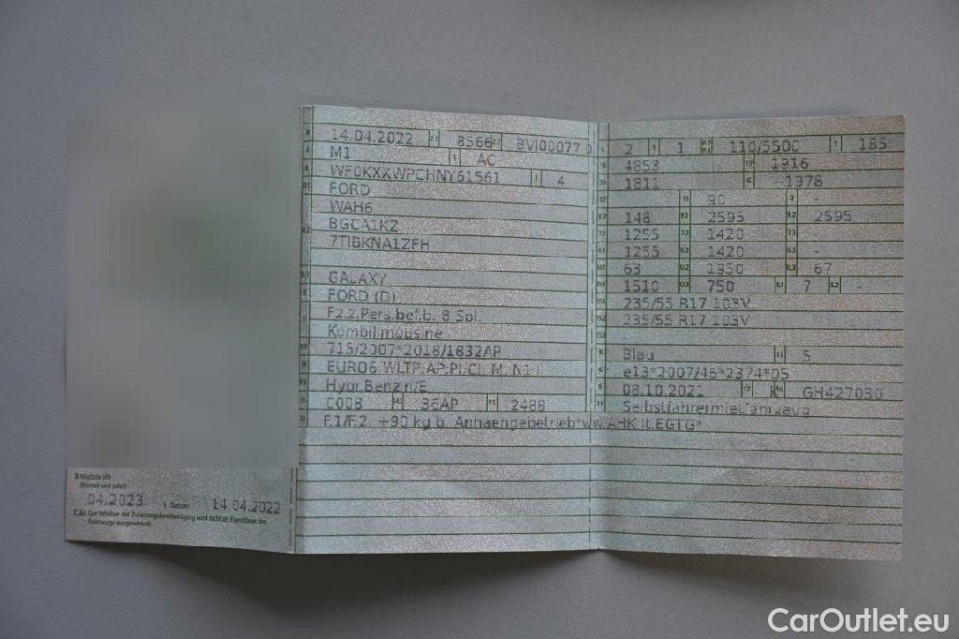 14.04.2022 8566 BVI00077
M1 AC
WF0KXXWPCHNY61561 4
FORD
WAH6
BGCA1KZ
7TIBKNA1ZFH
GALAXY
FORD (D)
Fz.z.Pers.bef.b. 8 Spl.
Kombilimousine
715/2007*2018/1832AP
EURO6
Hybr.Benzin/E
0008 36AP 2488
F.1/F.2: +90 kg b. Anhaengebetrieb*ww.AHK lt.EGTG*
2 1 110/5500 185
4853 1916
1811 -1978
- 90 -
148 2595 2595
1255 1420 -
1255 1420 -
63 1950 67
1510 750 7 -
235/55 R17 103V
235/55 R17 103V
Blau 5
e13*2007/46*2374*05
08.10.2021 K GH427030
Selbstfahrermietfahrzeug
Nächste HU
(Monat und Jahr)
04.2023 Datum: 14.04.2022
Der Inhaber der Zulassungsbescheinigung wird nicht als Eigentümer des
Fahrzeugs ausgewiesen.
CarOutlet.eu